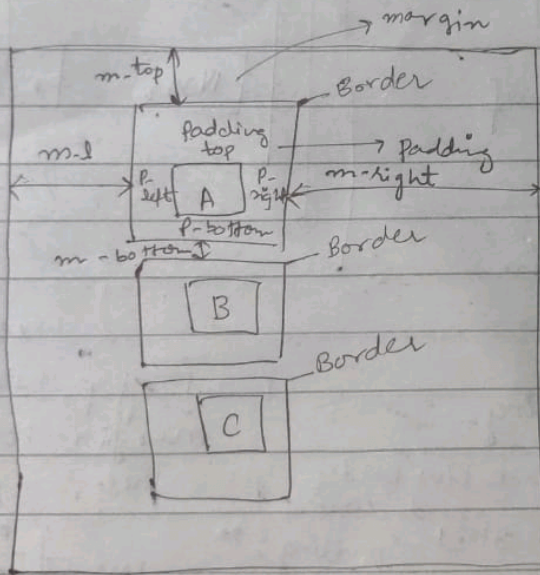 margin
m-top
Border
Padding
top
Padding
m-l
P-
left
A
P-
right
m-right
P-bottom
m-bottom
Border
B
Border
C